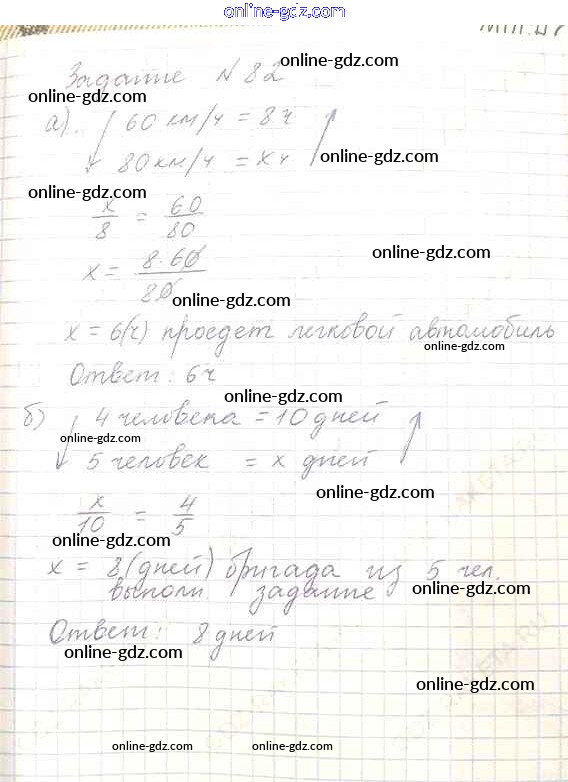 online-gdz.com
Задание № 82
online-gdz.com
online-gdz.com
а) 60 км/ч = 8 ч
80 км/ч = х ч
online-gdz.com
online-gdz.com
х/8 = 60/80
online-gdz.com
х = 8·60/80
online-gdz.com
х = 6(ч) проедет легковой автомобиль
online-gdz.com
Ответ: 6 ч
online-gdz.com
б) 4 человека = 10 дней
online-gdz.com
5 человек = х дней
online-gdz.com
х/10 = 4/5
online-gdz.com
х = 8 (дней) бригада из 5 чел.
выполн. задание
online-gdz.com
Ответ: 8 дней
online-gdz.com
online-gdz.com
online-gdz.com online-gdz.com